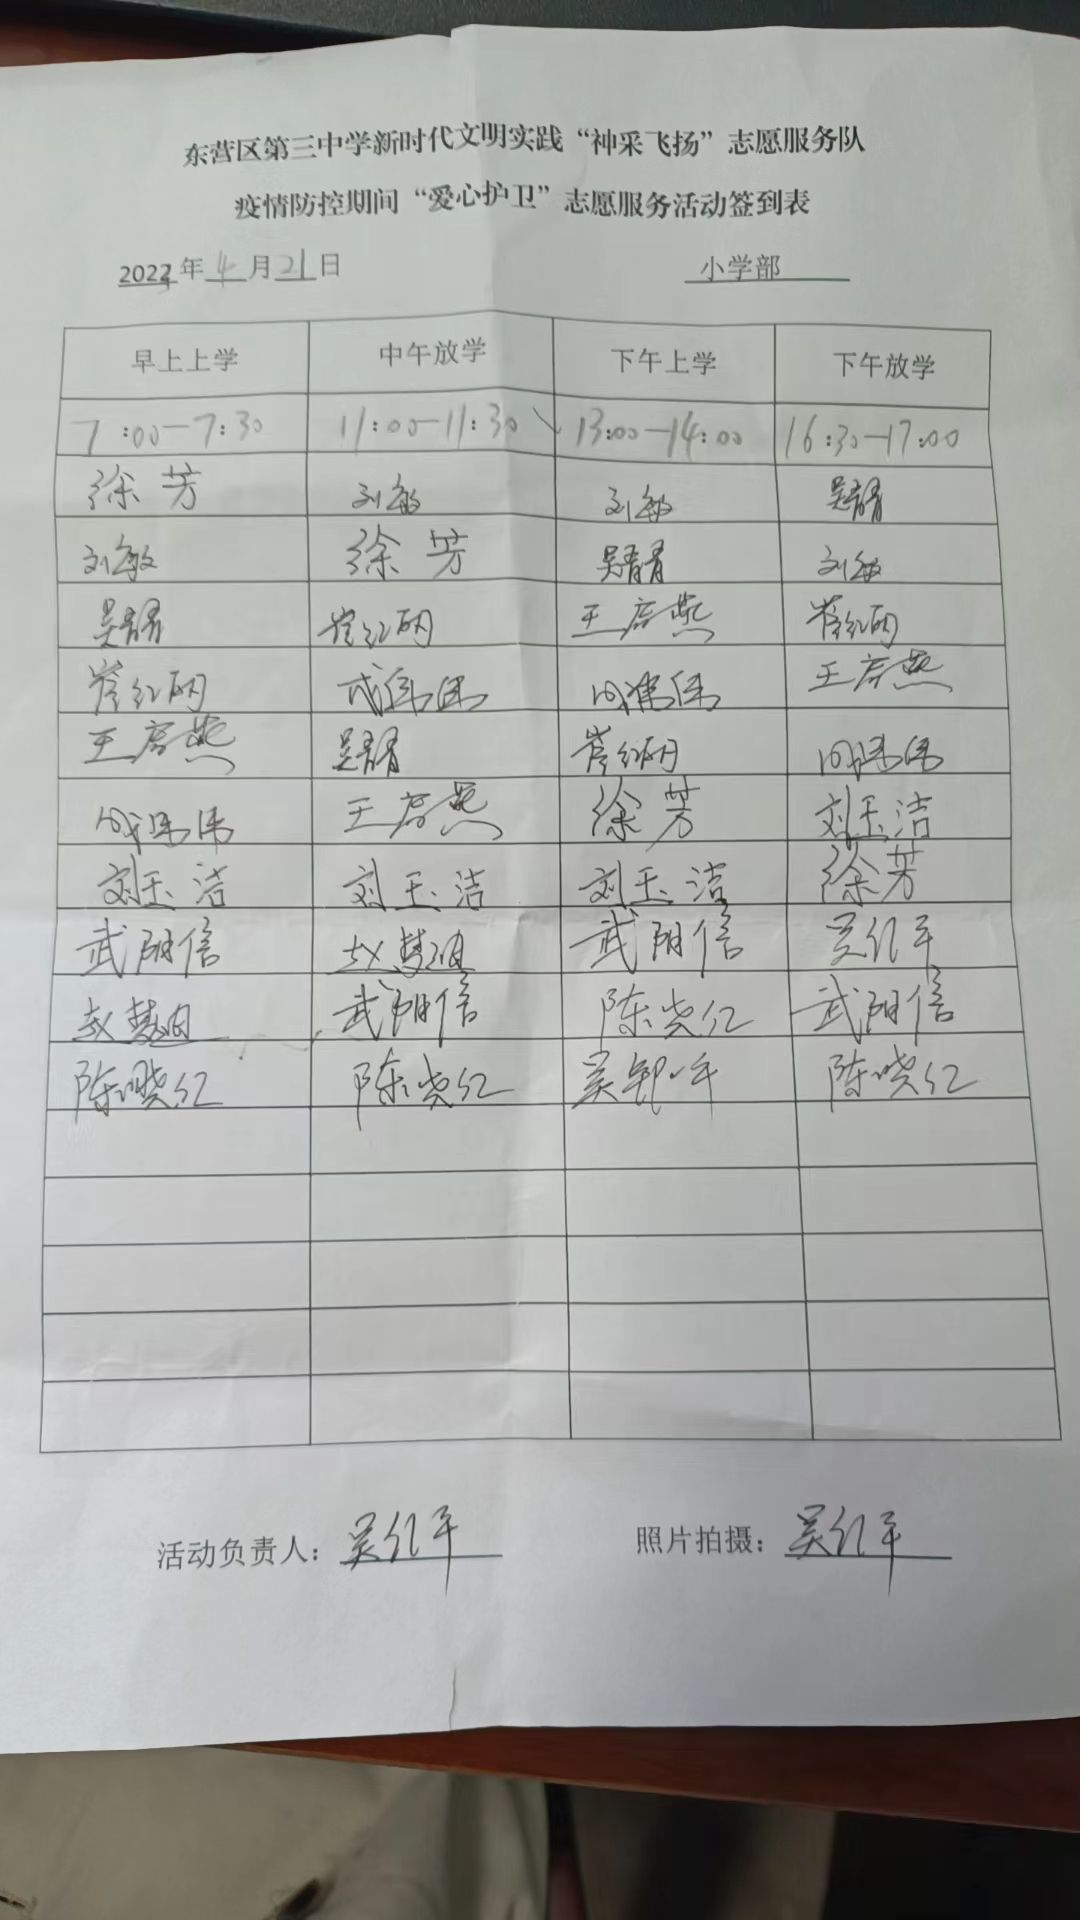 东营区第三中学新时代文明实践“神采飞扬”志愿服务队
疫情防控期间“爱心护卫”志愿服务活动签到表
2023年4月21日 小学部
早上上学 中午放学 下午上学 下午放学
7:00-7:30 11:00-11:30 13:00-14:00 16:30-17:00
徐芳 刘敏 刘敏 吴青青
刘敏 徐芳 吴青青 刘敏
吴青青 崔红丽 王彦燕 崔红丽
崔红丽 成伟伟 成伟伟 王彦燕
王彦燕 吴青青 崔红丽 成伟伟
成伟伟 王彦燕 徐芳 刘玉洁
刘玉洁 刘玉洁 刘玉洁 徐芳
武阳信 赵慧 武阳信 吴红平
赵慧 武阳信 陈晓红 武阳信
陈晓红 陈晓红 吴 平 陈晓红
活动负责人：吴红平 照片拍摄：吴红平